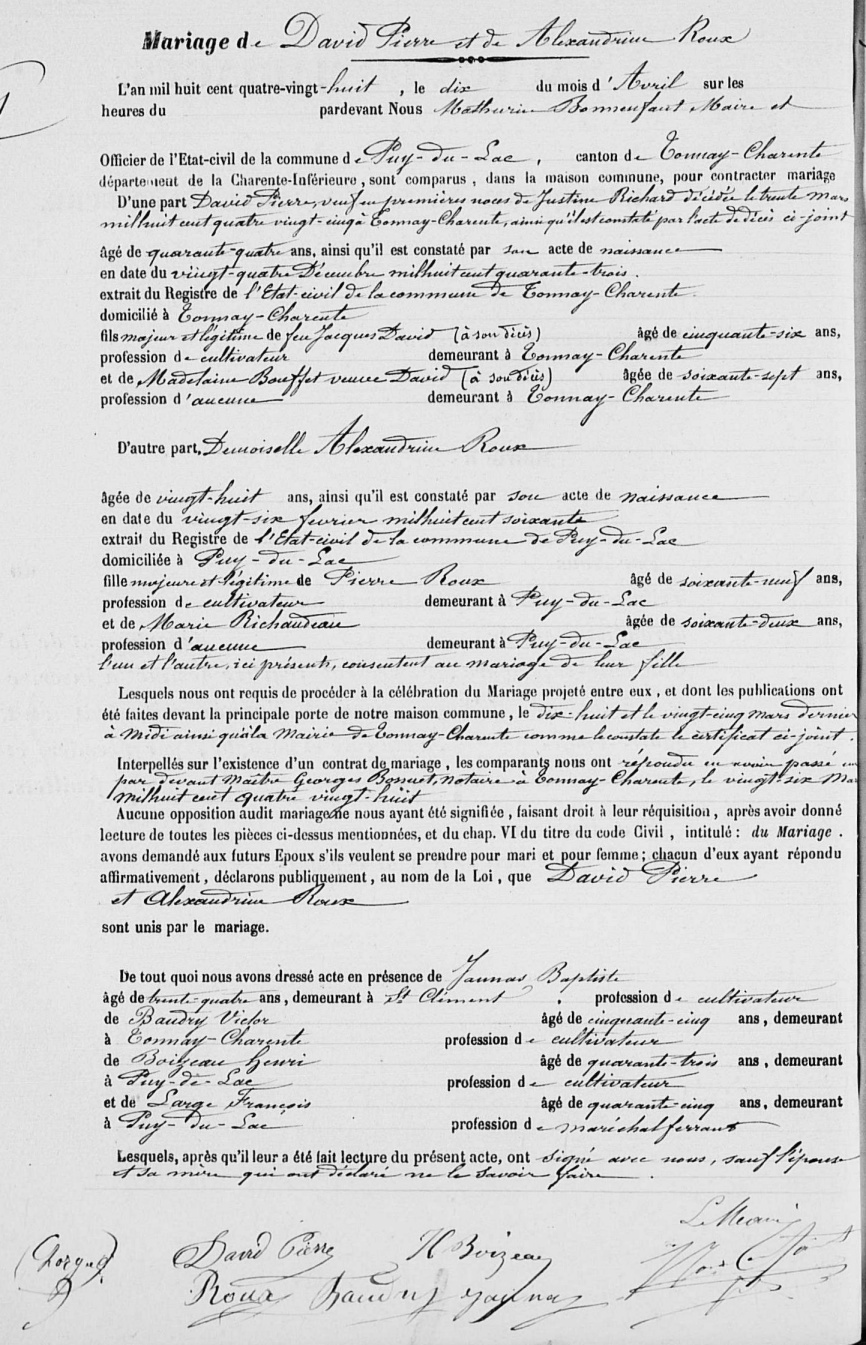 Mariage de David Pierre et de Alexandrine Roux
L'an mil huit cent quatre-vingt-huit, le dix du mois d'Avril sur les
heures du pardevant Nous Mathurin Bonnenfant Maire et
Officier de l'Etat-civil de la commune de Puy-du-Lac, canton de Tonnay-Charente
département de la Charente-Inférieure, sont comparus, dans la maison commune, pour contracter mariage
D'une part David Pierre, veuf en premières noces de Justine Richard décédée le trente Mars
mil huit cent quatre vingt-cinq à Tonnay-Charente, ainsi qu'il est constaté par l'acte de décès ci-joint
âgé de quarante-quatre ans, ainsi qu'il est constaté par son acte de naissance
en date du vingt-quatre Décembre mil huit cent quarante-trois.
extrait du Registre de l'Etat-civil de la commune de Tonnay-Charente.
domicilié à Tonnay-Charente
fils majeur et légitime de feu Jacques David (à son décès) âgé de cinquante-six ans,
profession de cultivateur demeurant à Tonnay-Charente
et de Madelaine Bouffet veuve David (à son décès) âgée de soixante-sept ans,
profession d'aucune demeurant à Tonnay-Charente
D'autre part, Demoiselle Alexandrine Roux
âgée de vingt-huit ans, ainsi qu'il est constaté par son acte de naissance
en date du vingt-six fevrier mil huit cent soixante
extrait du Registre de l'Etat-civil de la commune de Puy-du-Lac
domiciliée à Puy-du-Lac
fille majeure et légitime de Pierre Roux âgé de soixante-neuf ans,
profession de cultivateur demeurant à Puy-du-Lac
et de Marie Richaudeau âgée de soixante-deux ans,
profession d'aucune demeurant à Puy-du-Lac
l'un et l'autre, ici présents, consentent au mariage de leur fille
Lesquels nous ont requis de procéder à la célébration du Mariage projeté entre eux, et dont les publications ont
été faites devant la principale porte de notre maison commune, le dix-huit et le vingt-cinq mars dernier
à Midi ainsi qu'à la Mairie de Tonnay-Charente comme le constate le certificat ci-joint.
Interpellés sur l'existence d'un contrat de mariage, les comparants nous ont répondu en avoir passé un
par devant Maître Georges Bonnet, notaire à Tonnay-Charente, le vingt-six Mars
mil huit cent quatre vingt-huit
Aucune opposition audit mariage ne nous ayant été signifiée, faisant droit à leur réquisition, après avoir donné
lecture de toutes les pièces ci-dessus mentionnées, et du chap. VI du titre du code Civil, intitulé : du Mariage.
avons demandé aux futurs Epoux s'ils veulent se prendre pour mari et pour femme ; chacun d'eux ayant répondu
affirmativement, déclarons publiquement, au nom de la Loi, que David Pierre
et Alexandrine Roux
sont unis par le mariage.
De tout quoi nous avons dressé acte en présence de Jaunas Baptiste
âgé de trente-quatre ans, demeurant à St Clément, profession de cultivateur
de Baudry Victor âgé de cinquante-cinq ans, demeurant
à Tonnay-Charente profession de cultivateur
de Boizeau Henri âgé de quarante-trois ans, demeurant
à Puy-de-Lac profession de cultivateur
et de Large François âgé de quarante-cinq ans, demeurant
à Puy-du-Lac profession de maréchal ferrant
Lesquels, après qu'il leur a été fait lecture du présent acte, ont signé avec nous, sauf l'épouse
et sa mère qui ont déclaré ne le savoir faire.
Le Maire
David Pierre H Boizeau
Roux Baudry Jaunas